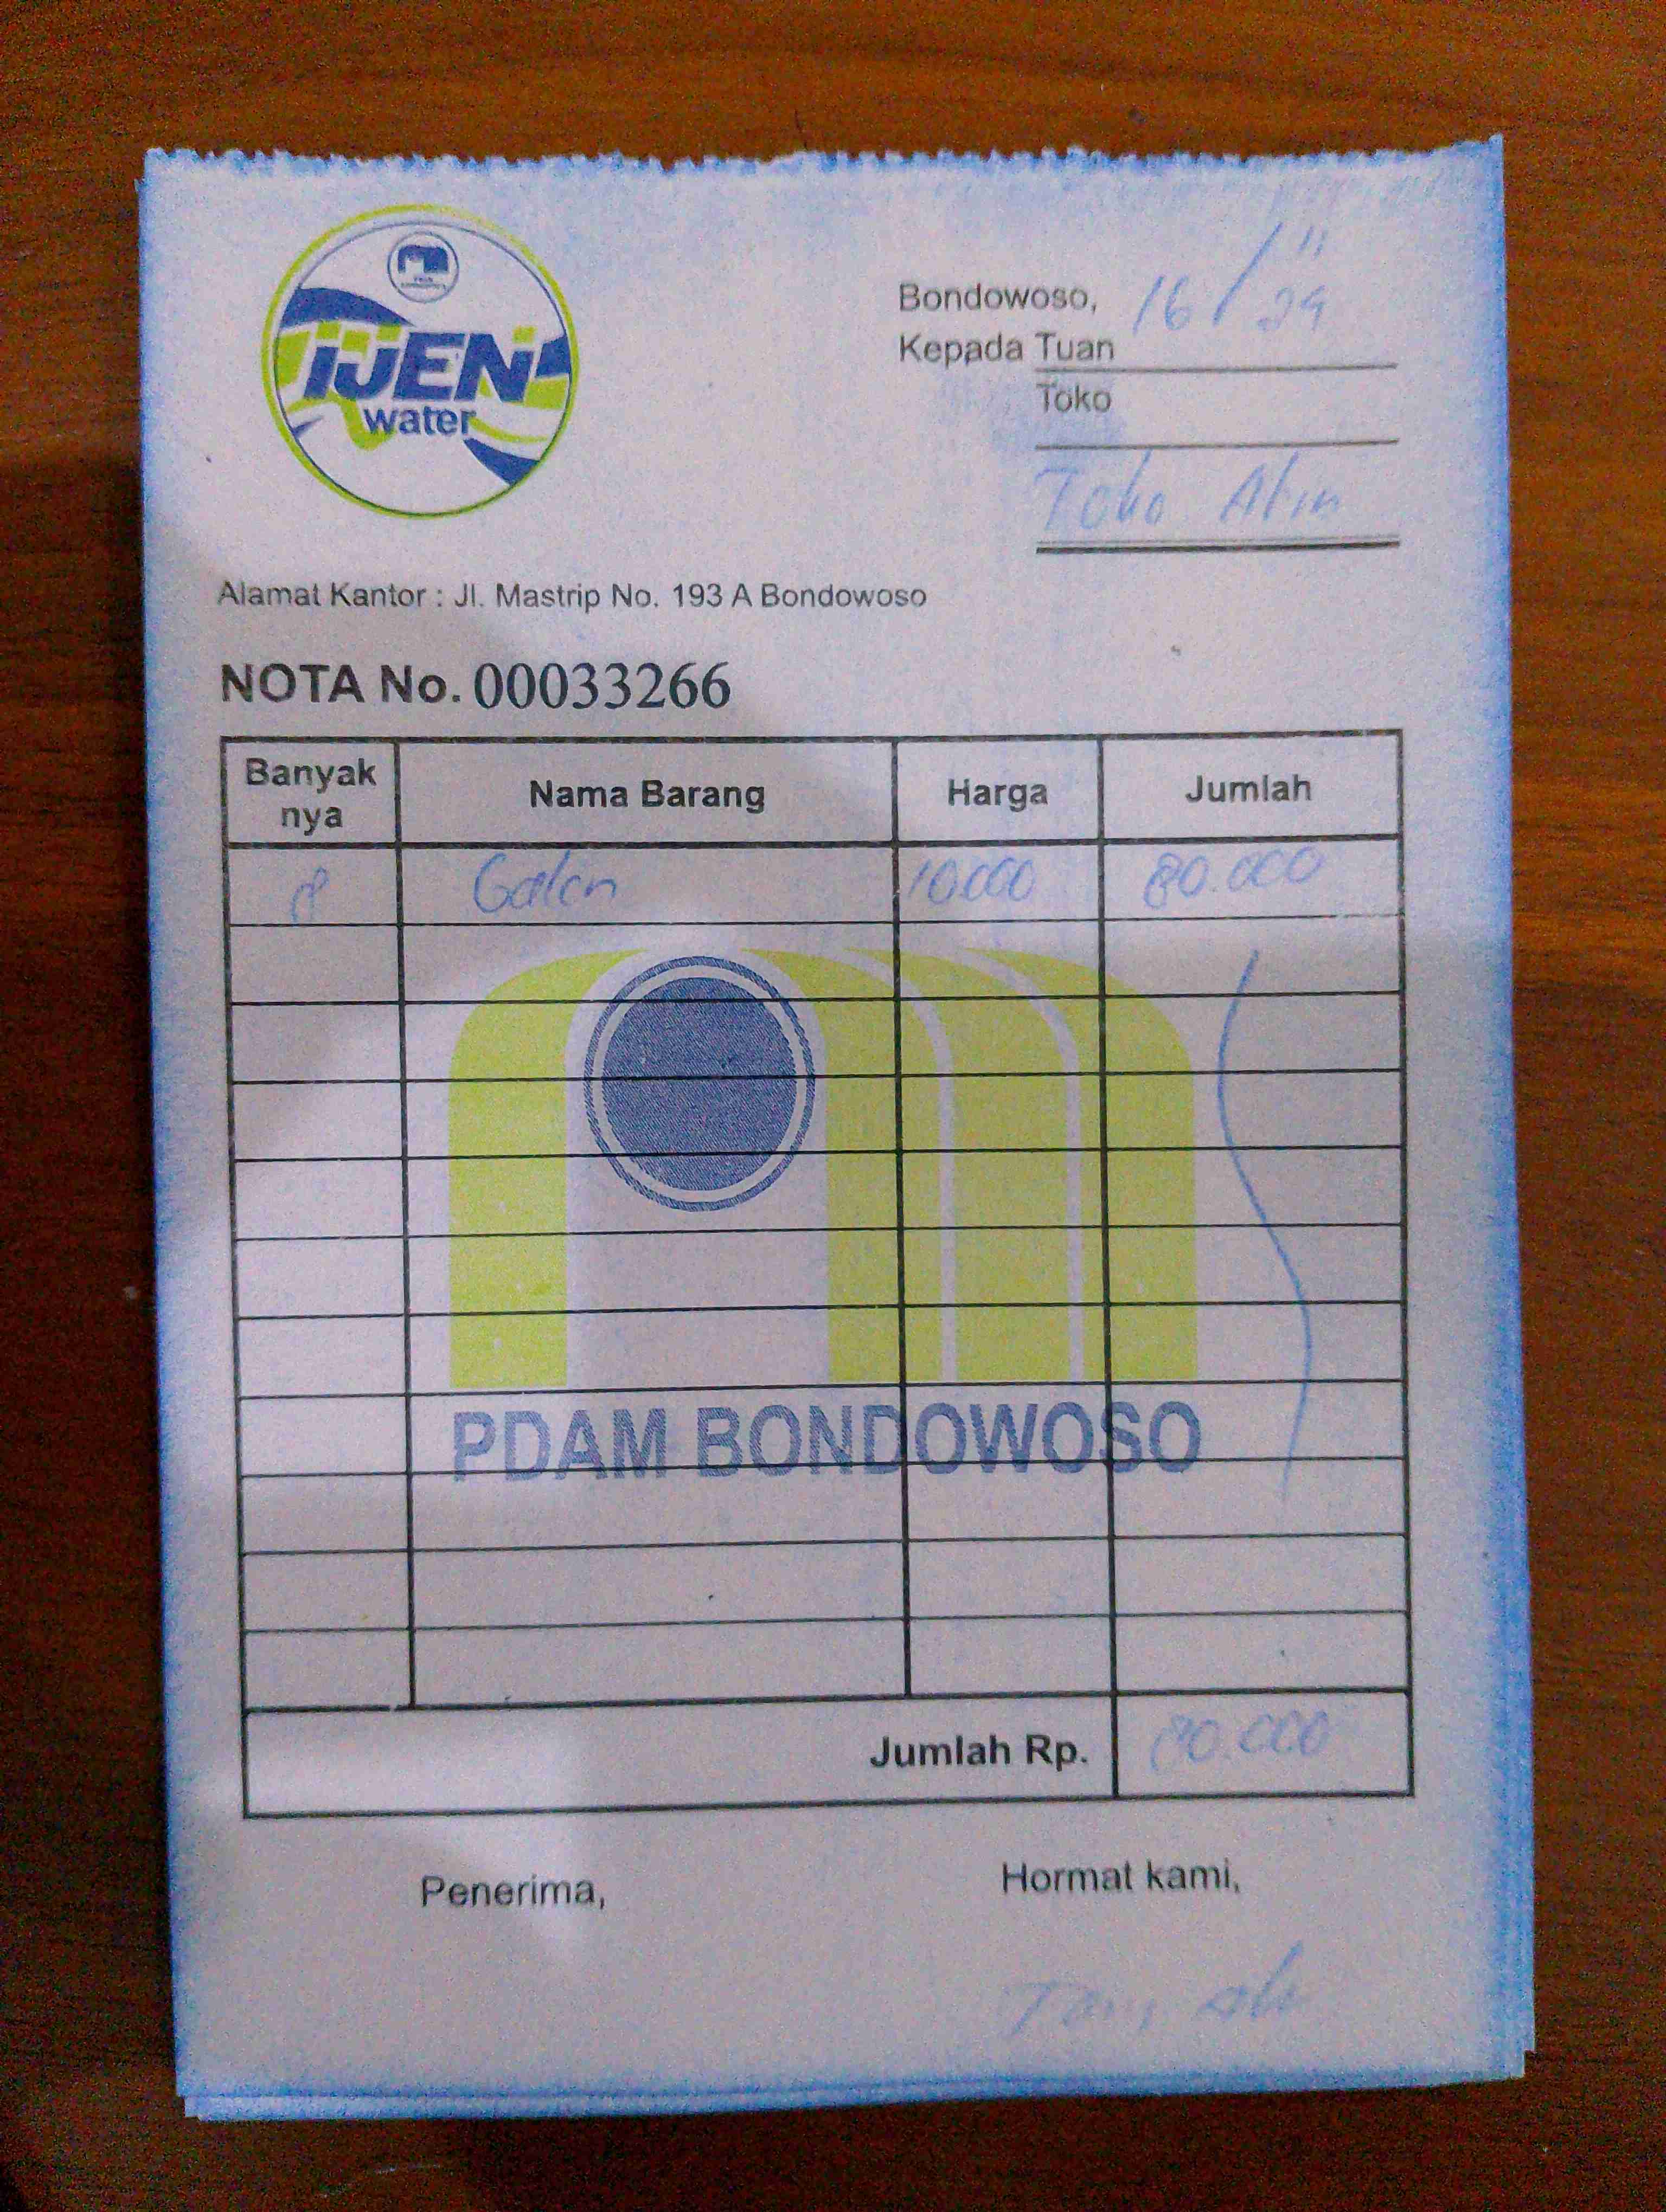 IJEN
water
Bondowoso, 16/11 24
Kepada Tuan
Toko
Toko Alin
Alamat Kantor : Jl. Mastrip No. 193 A Bondowoso
NOTA No. 00033266
Banyak nya Nama Barang Harga Jumlah
8 Galon 10.000 80.000
PDAM BONDOWOSO
Jumlah Rp. 80.000
Penerima, Hormat kami,